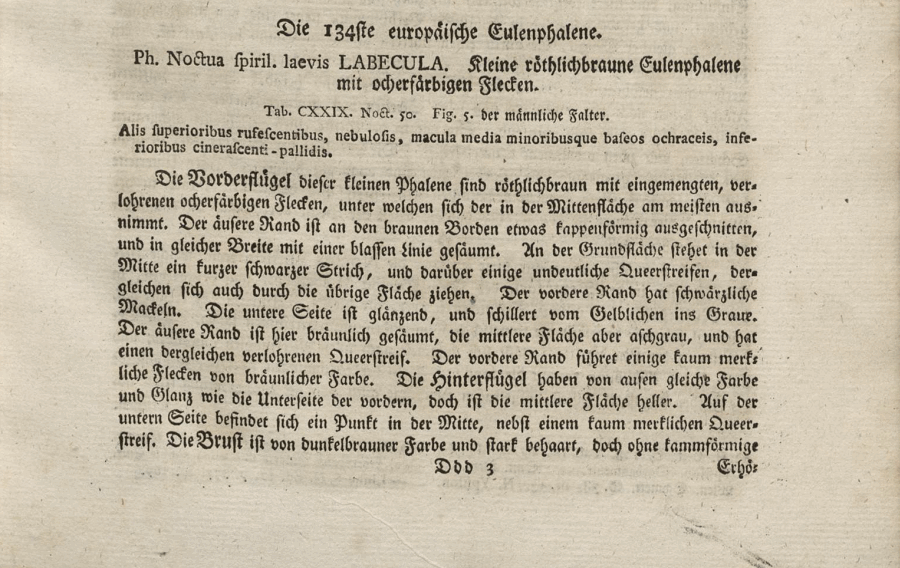 Die 134ste europäische Eulenphalene.
Ph. Noctua spiril. laevis LABECULA. Kleine röthlichbraune Eulenphalene
mit ocherfärbigen Flecken.
Tab. CXXIX. Noct. 50. Fig. 5. der männliche Falter.
Alis superioribus rufescentibus, nebulosis, macula media minoribusque baseos ochraceis, infe-
rioribus cinerascenti-pallidis.
Die Vorderflügel dieser kleinen Phalene sind röthlichbraun mit eingemengten, ver-
lohrenen ocherfärbigen Flecken, unter welchen sich der in der Mittenfläche am meisten aus-
nimmt. Der äusere Rand ist an den braunen Borden etwas kappenförmig ausgeschnitten,
und in gleicher Breite mit einer blassen Linie gesäumt. An der Grundfläche stehet in der
Mitte ein kurzer schwarzer Strich, und darüber einige undeutliche Queerstreifen, der-
gleichen sich auch durch die übrige Fläche ziehen. Der vordere Rand hat schwärzliche
Mackeln. Die untere Seite ist glänzend, und schillert vom Gelblichen ins Graue.
Der äusere Rand ist hier bräunlich gesäumt, die mittlere Fläche aber aschgrau, und hat
einen dergleichen verlohrenen Queerstreif. Der vordere Rand führet einige kaum merk-
liche Flecken von bräunlicher Farbe. Die Hinterflügel haben von ausen gleiche Farbe
und Glanz wie die Unterseite der vordern, doch ist die mittlere Fläche heller. Auf der
untern Seite befindet sich ein Punkt in der Mitte, nebst einem kaum merklichen Queer-
streif. Die Brust ist von dunkelbrauner Farbe und stark behaart, doch ohne kammförmige
Ddd 3 Erhö-